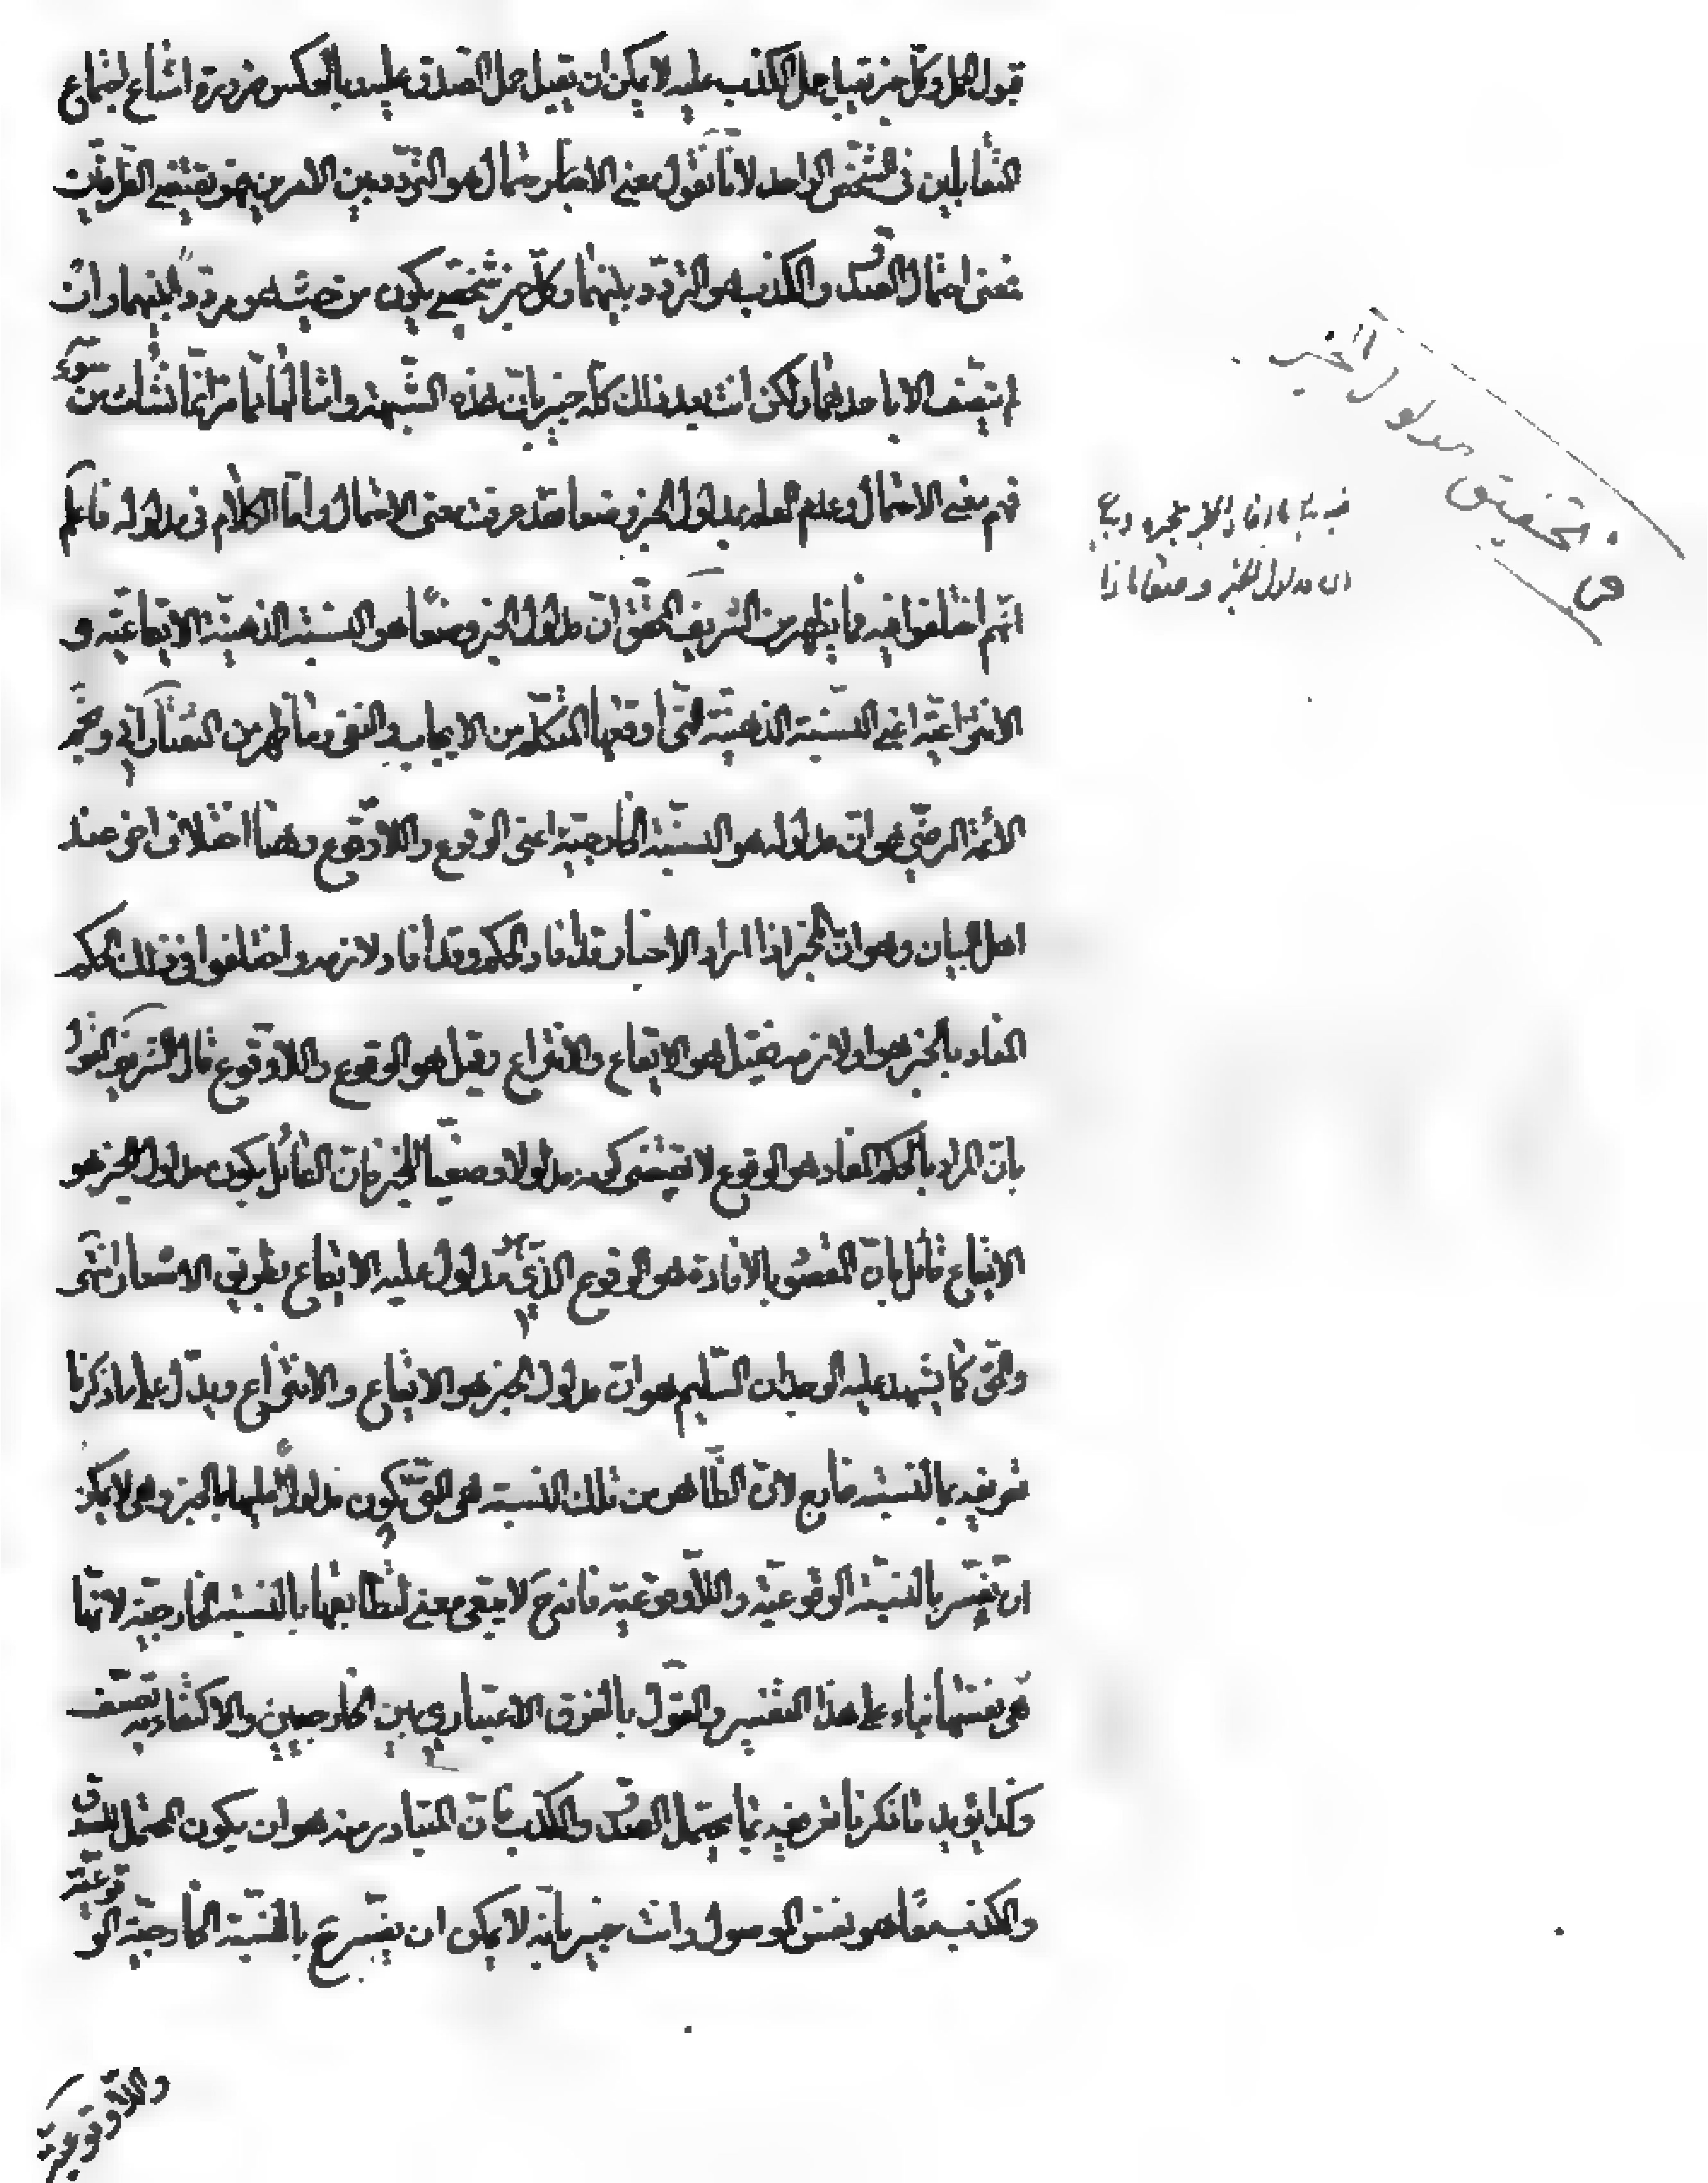 قبول الحمل وكل خبر تقبل حمل الكذب عليه لا يمكن ان يقبل حمل الصدق عليه وبالعكس ضرورة امتناع اجتماع
المتقابلين في الشخص الواحد لانا نقول معنى الاحتمال هو التردد بين الامرين فهو يقتضي الطرفين
فمعنى احتمال الصدق والكذب هو التردد بينهما وكل خبر شخصي يكون من حيث هو مرددا بينهما وان
لم يتصف الا باحدهما ولكن انت بعد ذلك كله خبير بان هذه الشبهة وامثالها مما مر انما نشأت من سوء
فهم معنى الاحتمال وعدم العلم بمدلول الخبر وضعا فقد عرفت معنى الاحتمال واما الكلام في مدلوله فاعلم
انهم اختلفوا فيه فما يظهر من الشريف المحقق ان مدلول الخبر وضعا هو النسبة الذهنية الايقاعية و
الانتزاعية اعني النسبة الذهنية التي اوقعها المتكلم من الايجاب والنفي وما ظهر من التفتازاني ونجم
الائمة الرضي هو ان مدلوله هو النسبة الخارجية اعني الوقوع واللاوقوع وهنا اختلاف اخر عند
اهل البيان وهو ان المخبر اذا اراد الاخبار فقد افاد الحكم وقد افاد لازمه واختلفوا في ذلك الحكم
المفاد بالخبر هو او لازمه فقيل هو الايقاع والانتزاع وقيل هو الوقوع واللاوقوع قال الشريف
بان المراد بالحكم المفاد هو الوقوع لا يقتضي كونه مدلولا وضعيا للخبر فان القائل بكون مدلول الخبر هو
الايقاع قائل بان المقصود بالافادة هو الوقوع الذي يدل عليه الايقاع بطريق الاشعار انتهى
والحق كما يشهد عليه الوجدان السليم هو ان مدلول الخبر هو الايقاع والانتزاع ويدل على ما ذكرنا
تعريفه بما لنسبته خارج لان الظاهر من تلك النسبة هي التي يكون مدلولا عليها بالخبر وهي لا يمكن
ان تفسر بالنسبة الوقوعية واللاوقوعية فانه ح لا يبقى معنى لتطابقها بالنسبة الخارجية لانها
هي نفسها بناء على هذا التفسير والقول بالفرق الاعتباري بين الخارجيين والاكتفاء به تعسف
وكذا يؤيد ما ذكرنا تعريفه بما يحتمل الصدق والكذب فان المتبادر منه هو ان يكون المحتمل للصدق
والكذب معا هو نفس الموصول وانت خبير بانه لا يمكن ان يفسر ع بالنسبة الخارجية الوقوعية
واللاوقوعية
في تحقيق مدلول الخبر
ان مدلول الخبر وضعا ماذا